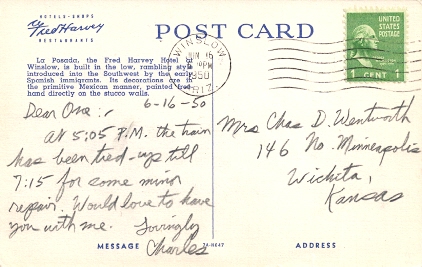 HOTELS · SHOPS
Fred Harvey
RESTAURANTS
POST CARD
La Posada, the Fred Harvey Hotel at
Winslow, is built in the low, rambling style
introduced into the Southwest by the early
Spanish immigrants. Its decorations are in
the primitive Mexican manner, painted free
hand directly on the stucco walls.
WINSLOW
JUN 16
PM
1950
ARIZ.
UNITED
STATES
POSTAGE
1 CENT 1
6-16-50
Dear One:,
At 5:05 P.M. the train
has been tied-up till
7:15 for some minor
repair. Would love to have
you with me. Lovingly
Charles
Mrs Chas D. Wentworth
146 No. Minneapolis
Wichita,
Kansas
MESSAGE
7A-H647
ADDRESS